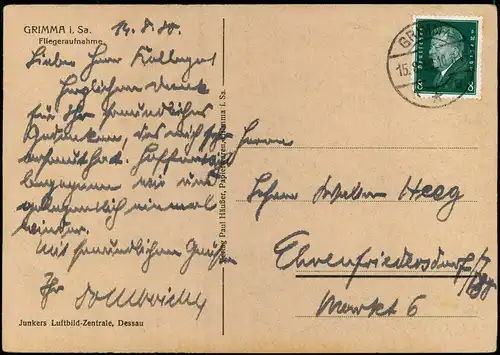 GRIMMA i. Sa.
Fliegeraufnahme
14. 8. 30.
Lieber Herr Kollege!
Herzlichen Dank
für Ihr freundliches
Gedenken, das mich sehr
erfreut hat. Hoffentlich
begegnen wir uns
gelegentlich einmal
wieder.
Mit freundlichen Grüßen
Ihr
Junkers Luftbild-Zentrale, Dessau
Verlag Paul Häußer, Papierwaren, Grimma i. Sa.
GRIMMA
15.8.
Deutsches Reich
8 8
Herrn
Heeg
Ehrenfriedersdorf
Markt 6